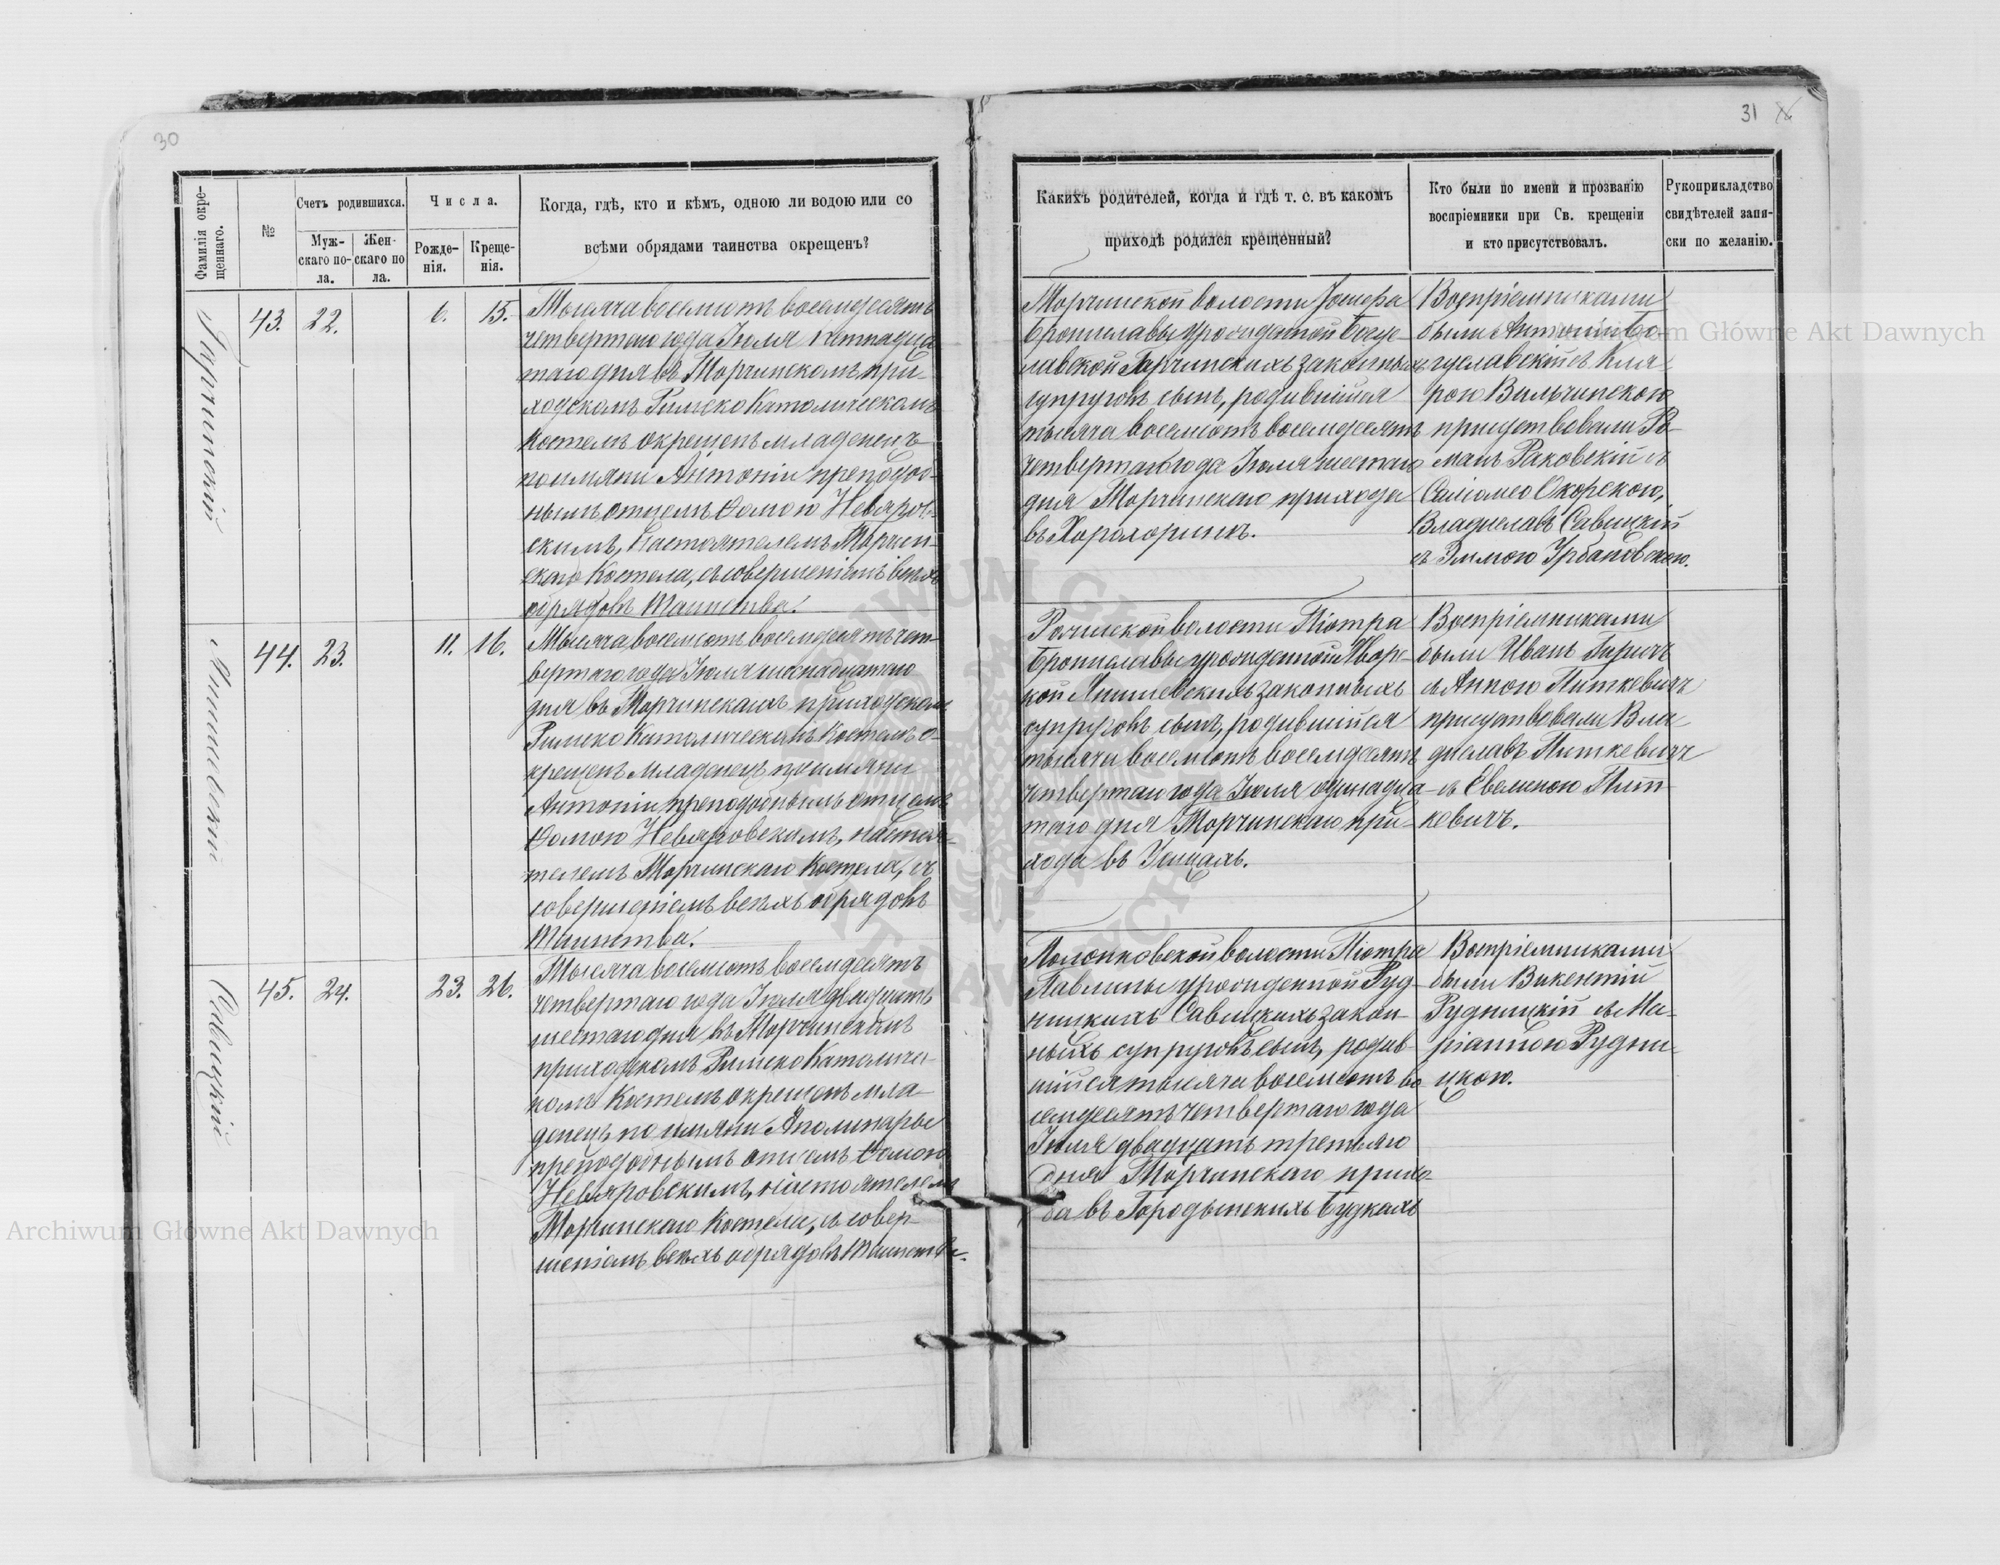 30
Фамилія окре-
щеннаго.
№
Счетъ родившихся.
Муж-
скаго по-
ла.
Жен-
скаго по
ла.
Числа.
Рожде-
нія.
Креще-
нія.
Когда, гдѣ, кто и кѣмъ, одною ли водою или со
всѣми обрядами таинства окрещенъ?
43.
22.
6.
15.
Тысяча восемсотъ восемдесятъ
четвертаго года Іюля пятнадца
таго дня въ Торчинскомъ при-
ходскомъ Римско Католическомъ
Костелѣ окрещенъ младенецъ
по имяни Антоній преподоб-
нымъ отцемъ Ѳомою Невяров-
скимъ, Настоятелемъ Торчин-
скаго Костела, съ совершеніемъ всѣхъ
обрядовъ Таинства.
44.
23.
11.
16.
Тысяча восемсотъ восемдесятъ чет-
вертаго года Іюля шеснадцатаго
дня въ Торчинскомъ приходскомъ
Римско Католическомъ Костелѣ о-
крещенъ младенецъ по имяни
Антоній преподобнымъ отцемъ
Ѳомою Невяровскимъ, настоя-
телемъ Торчинскаго Костела, съ
совершеніемъ всѣхъ обрядовъ
Таинства.
Савицкій
45.
24.
23.
26.
Тысяча восемсотъ восемдесятъ
четвертаго года Іюля двадцать
шестаго дня въ Торчинскомъ
приходскомъ Римско Католиче-
комъ Костелѣ окрещенъ мла-
денецъ по имяни Аполинары
преподобнымъ отцемъ Ѳомою
Невяровскимъ, настоятелемъ
Торчинскаго Костела, съ совер-
шеніемъ всѣхъ обрядовъ Таинства.
31
Какихъ родителей, когда и гдѣ т. е. въ какомъ
приходѣ родился крещенный?
Кто были по имени и прозванію
воспріемники при Св. крещеніи
и кто присутствовалъ.
Рукоприкладство
свидѣтелей запи-
ски по желанію.
Торчинской волости Іосифа
Брониславы урожденной Богу-
славской законныхъ
супруговъ сынъ, родившійся
тысяча восемсотъ восемдесятъ
четвертаго года Іюля шестаго
дня Торчинскаго прихода
въ Хорохоринѣ.
Воспріемниками
были Антоній Бо-
гуславскій съ Кля
рою Вильчинскою
присутствовали Ро-
манъ Раковскій съ
Саломеею Окорскою,
Владиславъ Савицкій
съ Эммою Урбановскою.
волости Піотра
Брониславы урожденной
законныхъ
супруговъ сынъ, родившійся
тысяча восемсотъ восемдесятъ
четвертаго года Іюля одинадца
таго дня Торчинскаго при-
хода въ
Воспріемниками
были Иванъ
съ Анною Питкевичъ
присутствовали Вла
диславъ Питкевичъ
съ Евелиною Пит
кевичъ.
волости Піотра
Павлины урожденной Руд-
ницкихъ Савицкихъ закон-
ныхъ супруговъ сынъ, родив-
шійся тысяча восемсотъ во
семдесятъ четвертаго года
Іюля двадцать третьяго
дня Торчинскаго прихо-
да въ Городынскихъ Будкахъ
Воспріемниками
были Викентій
Рудницкій съ Ма-
ріанною Рудни-
цкою.
Archiwum Główne Akt Dawnych
Archiwum Główne Akt Dawnych